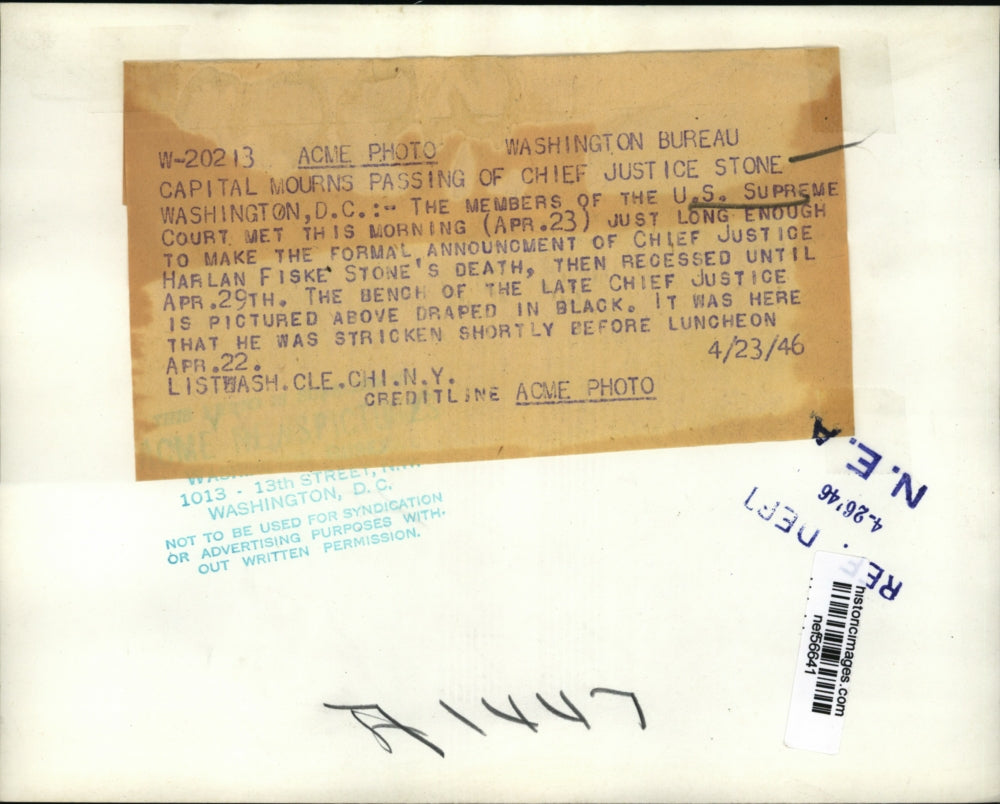 W-20213 ACME PHOTO WASHINGTON BUREAU
CAPITAL MOURNS PASSING OF CHIEF JUSTICE STONE
WASHINGTON, D.C.:- THE MEMBERS OF THE U.S. SUPREME
COURT MET THIS MORNING (APR.23) JUST LONG ENOUGH
TO MAKE THE FORMAL ANNOUNCMENT OF CHIEF JUSTICE
HARLAN FISKE STONE'S DEATH, THEN RECESSED UNTIL
APR.29TH. THE BENCH OF THE LATE CHIEF JUSTICE
IS PICTURED ABOVE DRAPED IN BLACK. IT WAS HERE
THAT HE WAS STRICKEN SHORTLY BEFORE LUNCHEON
APR.22. 4/23/46
LISTWASH.CLE.CHI.N.Y.
CREDITLINE ACME PHOTO
1013 - 13th STREET, N.W.
WASHINGTON, D.C.
NOT TO BE USED FOR SYNDICATION
OR ADVERTISING PURPOSES WITH-
OUT WRITTEN PERMISSION.
N.E.A
4-26'46
REF. DEPT
historicimages.com
nef56641
A1447